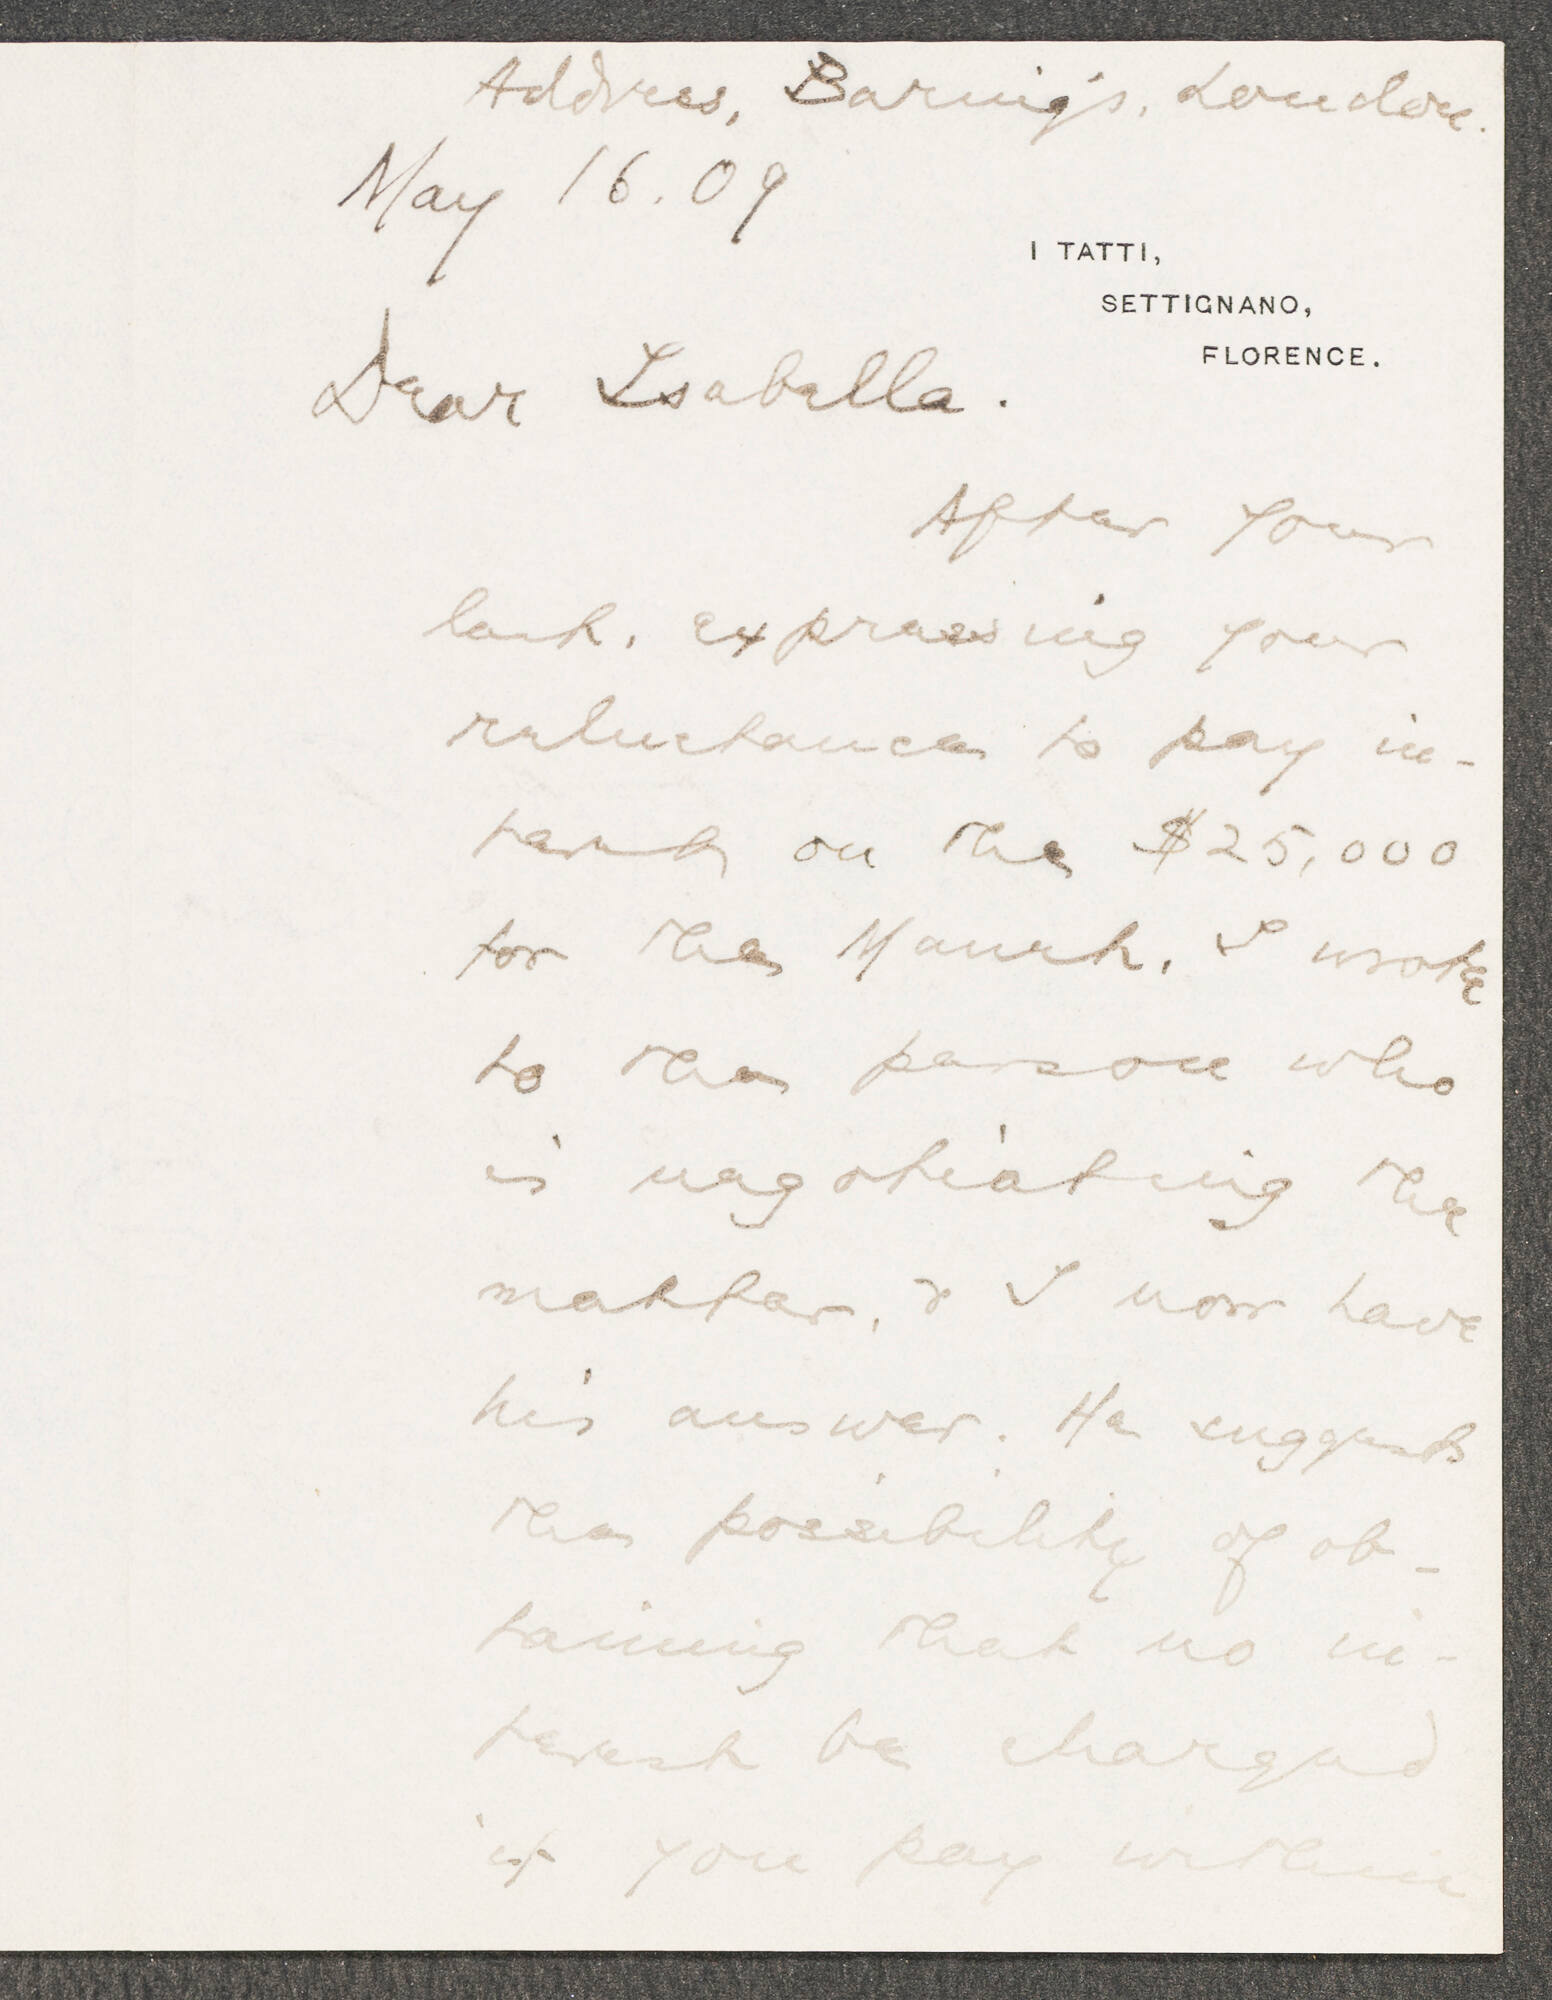 Address, Baring's, London.
May 16.09
I TATTI,
SETTIGNANO,
FLORENCE.
Dear Isabella.
After your
last, expressing your
reluctance to pay in-
terest on the $25,000
for the Manet, I wrote
to the person who
is negotiating the
matter, & I now have
his answer. He suggests
the possibility of ob-
taining that no in-
terest be charged
if you pay within